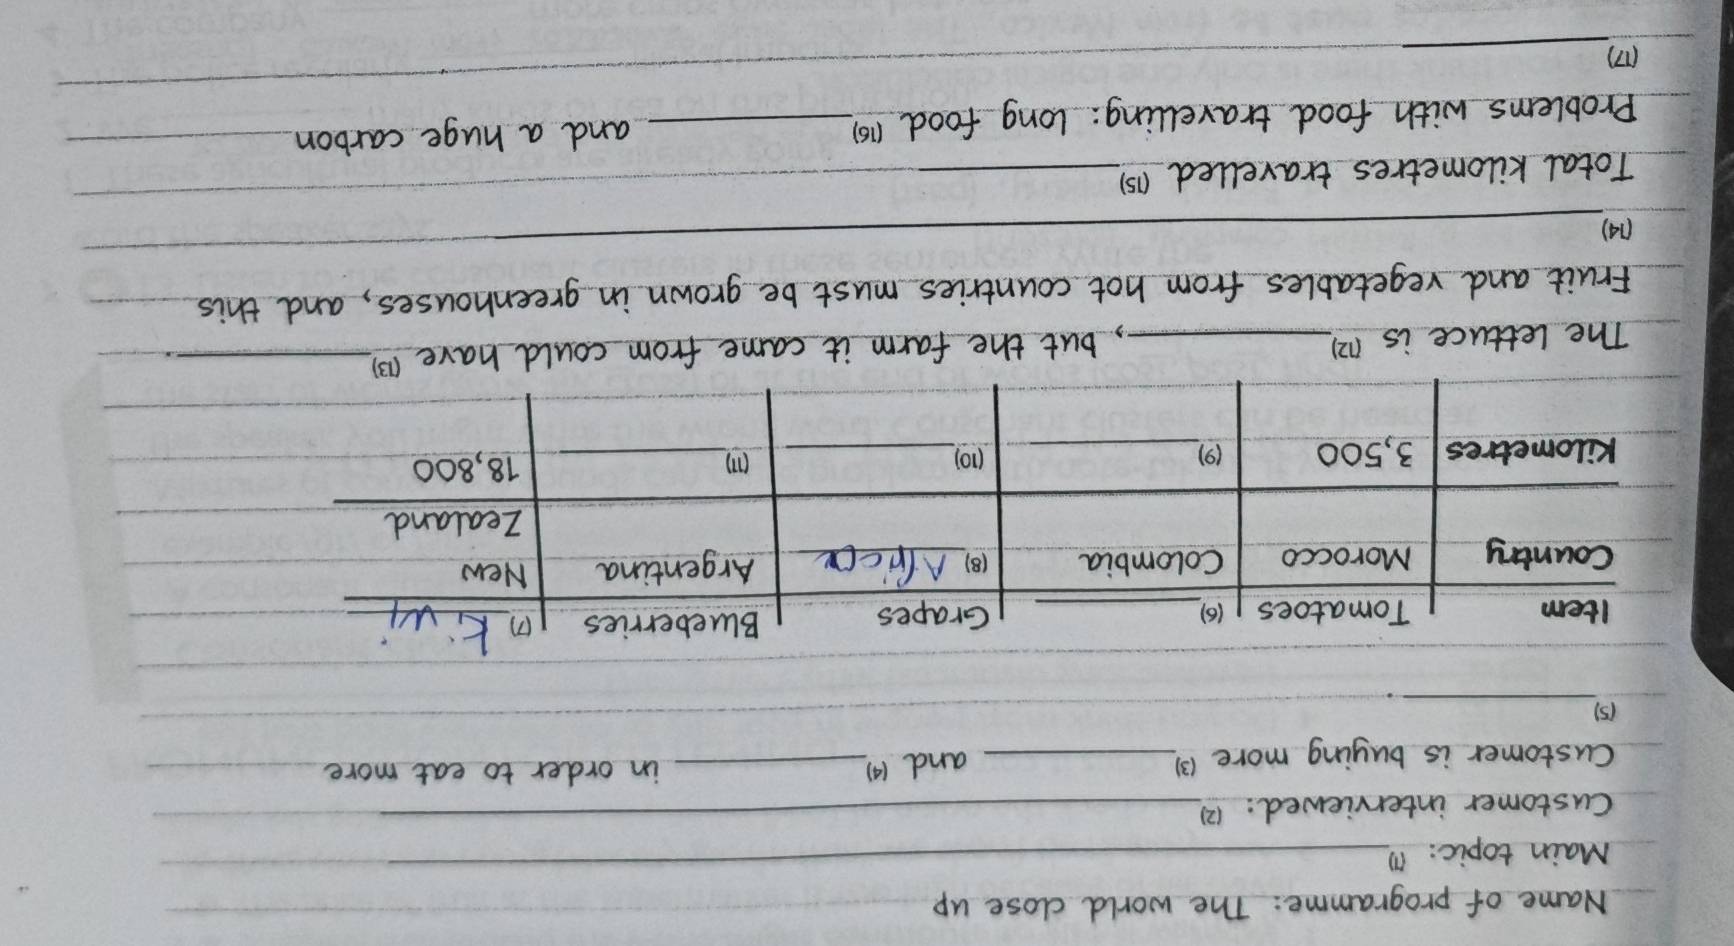 Name of programme: The world close up
Main topic: (1)
Customer interviewed: (2)
Customer is buying more (3) and (4) in order to eat more
(5) .
Item Tomatoes (6) Grapes Blueberries (7) Kiwi
Country Morocco Colombia (8) Africa Argentina New
Zealand
Kilometres 3,500 (9) (10) (11) 18,800
The lettuce is (12) , but the farm it came from could have (13) .
Fruit and vegetables from hot countries must be grown in greenhouses, and this
(14)
Total kilometres travelled (15)
Problems with food travelling: long food (16) and a huge carbon
(17) .